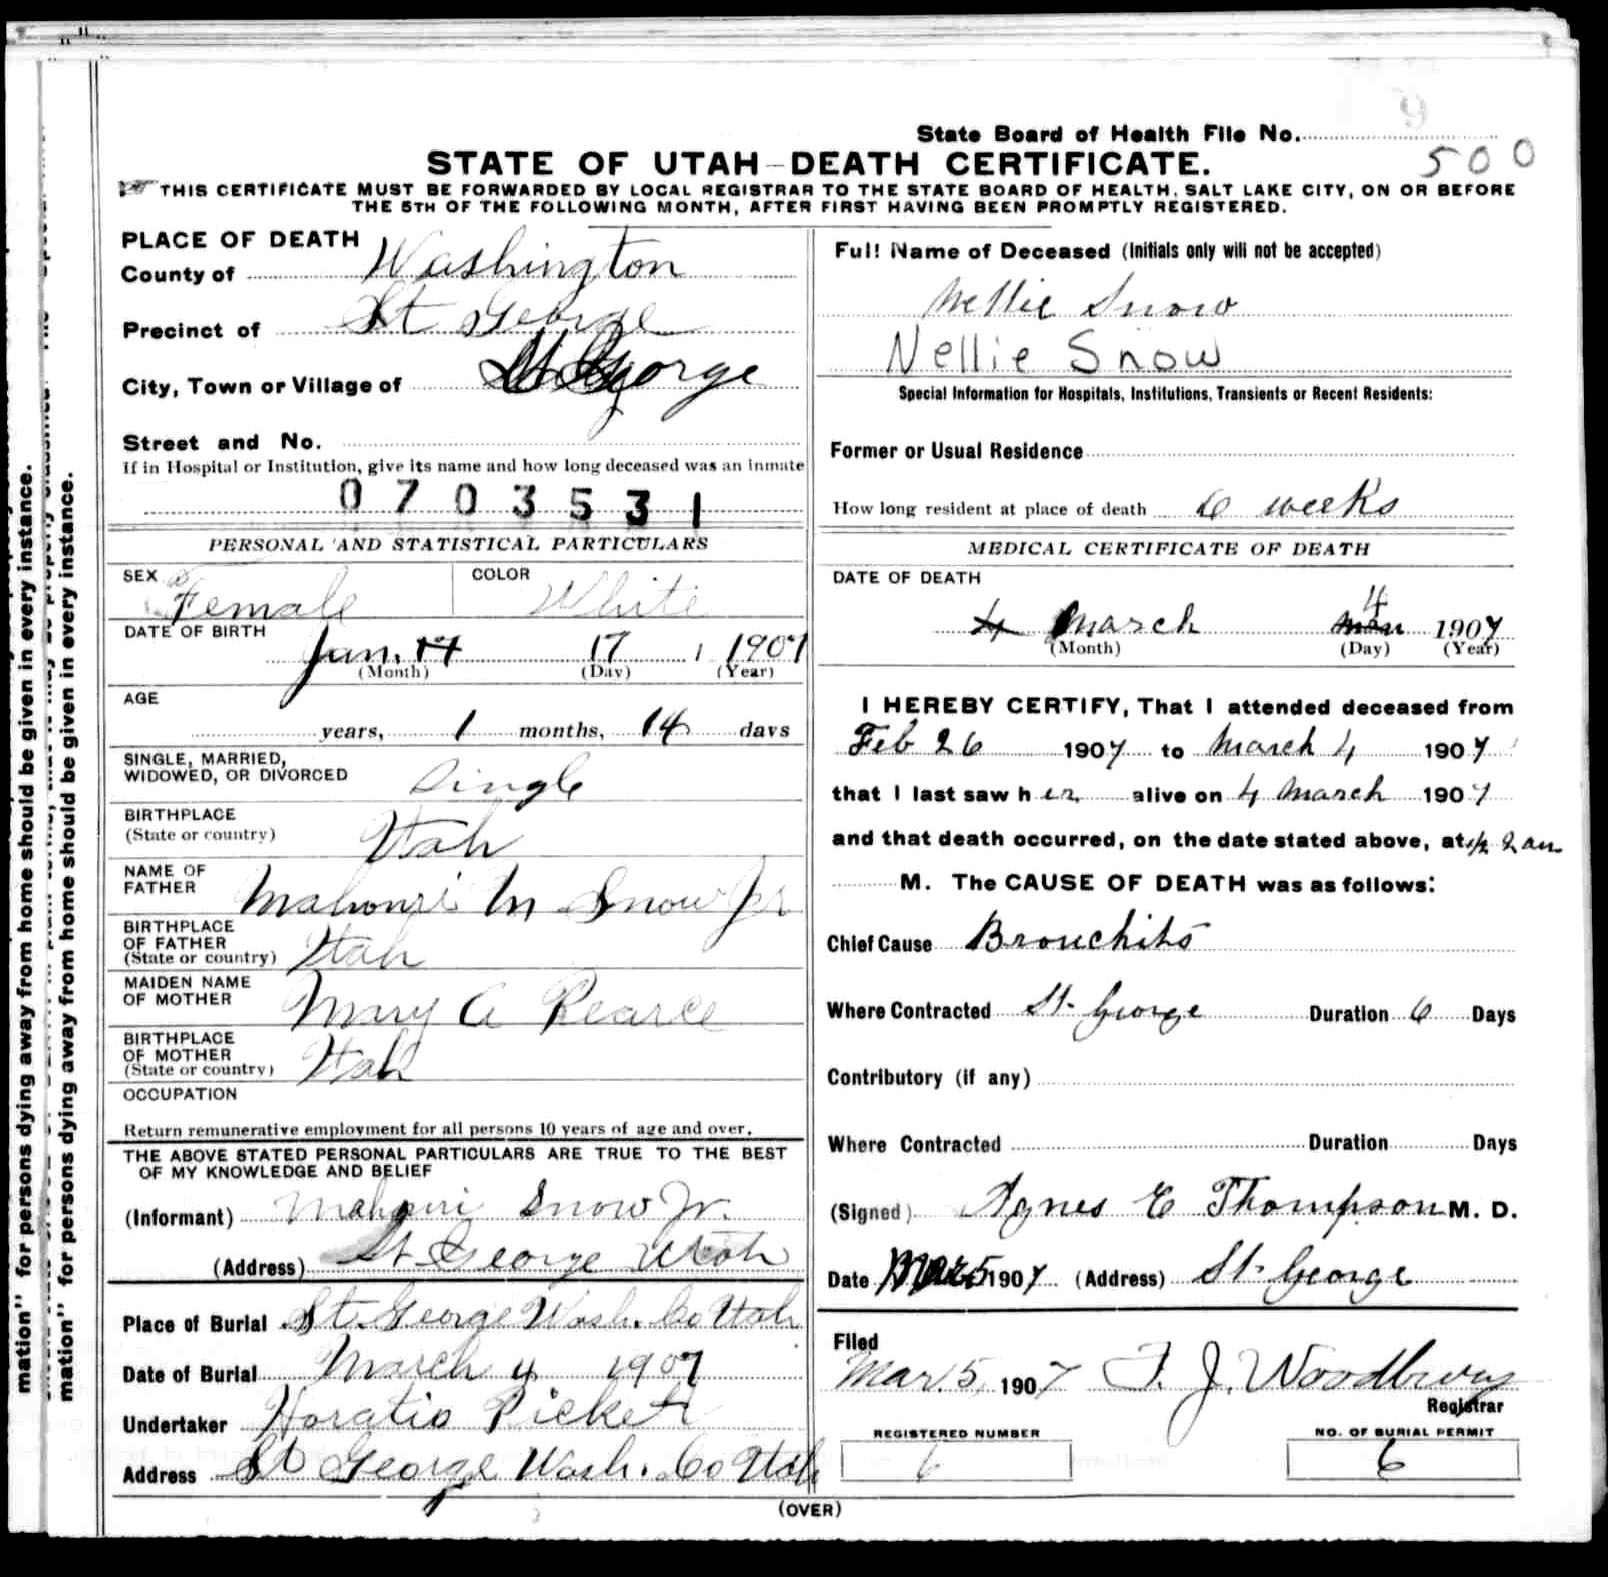 State Board of Health File No. 9
500
STATE OF UTAH—DEATH CERTIFICATE.
THIS CERTIFICATE MUST BE FORWARDED BY LOCAL REGISTRAR TO THE STATE BOARD OF HEALTH, SALT LAKE CITY, ON OR BEFORE
THE 5TH OF THE FOLLOWING MONTH, AFTER FIRST HAVING BEEN PROMPTLY REGISTERED.
PLACE OF DEATH
County of Washington
Precinct of St George
City, Town or Village of St George
Street and No.
If in Hospital or Institution, give its name and how long deceased was an inmate
0703531
PERSONAL AND STATISTICAL PARTICULARS
SEX Female COLOR White
DATE OF BIRTH
Jan. 17 17 1907
(Month) (Day) (Year)
AGE
years, 1 months, 14 days
SINGLE, MARRIED,
WIDOWED, OR DIVORCED Single
BIRTHPLACE
(State or country) Utah
NAME OF
FATHER Mahonri M Snow Jr
BIRTHPLACE
OF FATHER
(State or country) Utah
MAIDEN NAME
OF MOTHER Mary A Pearce
BIRTHPLACE
OF MOTHER
(State or country) Utah
OCCUPATION
Return remunerative employment for all persons 10 years of age and over.
THE ABOVE STATED PERSONAL PARTICULARS ARE TRUE TO THE BEST
OF MY KNOWLEDGE AND BELIEF
(Informant) Mahonri Snow Jr.
(Address) St George Utah
Place of Burial St. George Wash. Co Utah
Date of Burial March 4 1907
Undertaker Horatio Pickett
Address St George Wash. Co Utah
Full Name of Deceased (Initials only will not be accepted)
Nellie Snow
Nellie Snow
Special Information for Hospitals, Institutions, Transients or Recent Residents:
Former or Usual Residence
How long resident at place of death 6 weeks
MEDICAL CERTIFICATE OF DEATH
DATE OF DEATH
4 March 4 1907
(Month) (Day) (Year)
I HEREBY CERTIFY, That I attended deceased from
Feb 26 1907 to March 4 1907
that I last saw her alive on 4 March 1907
and that death occurred, on the date stated above, at 1/2 2 am
M. The CAUSE OF DEATH was as follows:
Chief Cause Bronchitis
Where Contracted St. George Duration 6 Days
Contributory (if any)
Where Contracted Duration Days
(Signed) Agnes E Thompson M. D.
Date Mar 5 1907 (Address) St. George
Filed
Mar. 5, 1907 F. J. Woodbury
Registrar
REGISTERED NUMBER
6
NO. OF BURIAL PERMIT
6
(OVER)
mation" for persons dying away from home should be given in every instance.
mation" for persons dying away from home should be given in every instance.